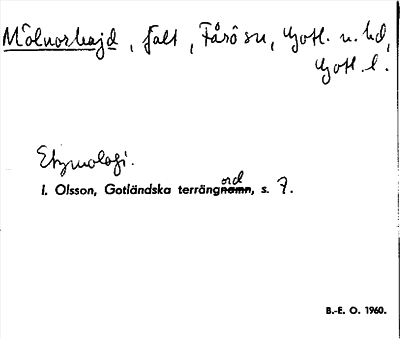 Mölnorhajd, falt, Fårö sn, Gotl. n. hd,
Gotl. l.
Etymologi.
I. Olsson, Gotländska terrängord, s. 7.
B.-E. O. 1960.